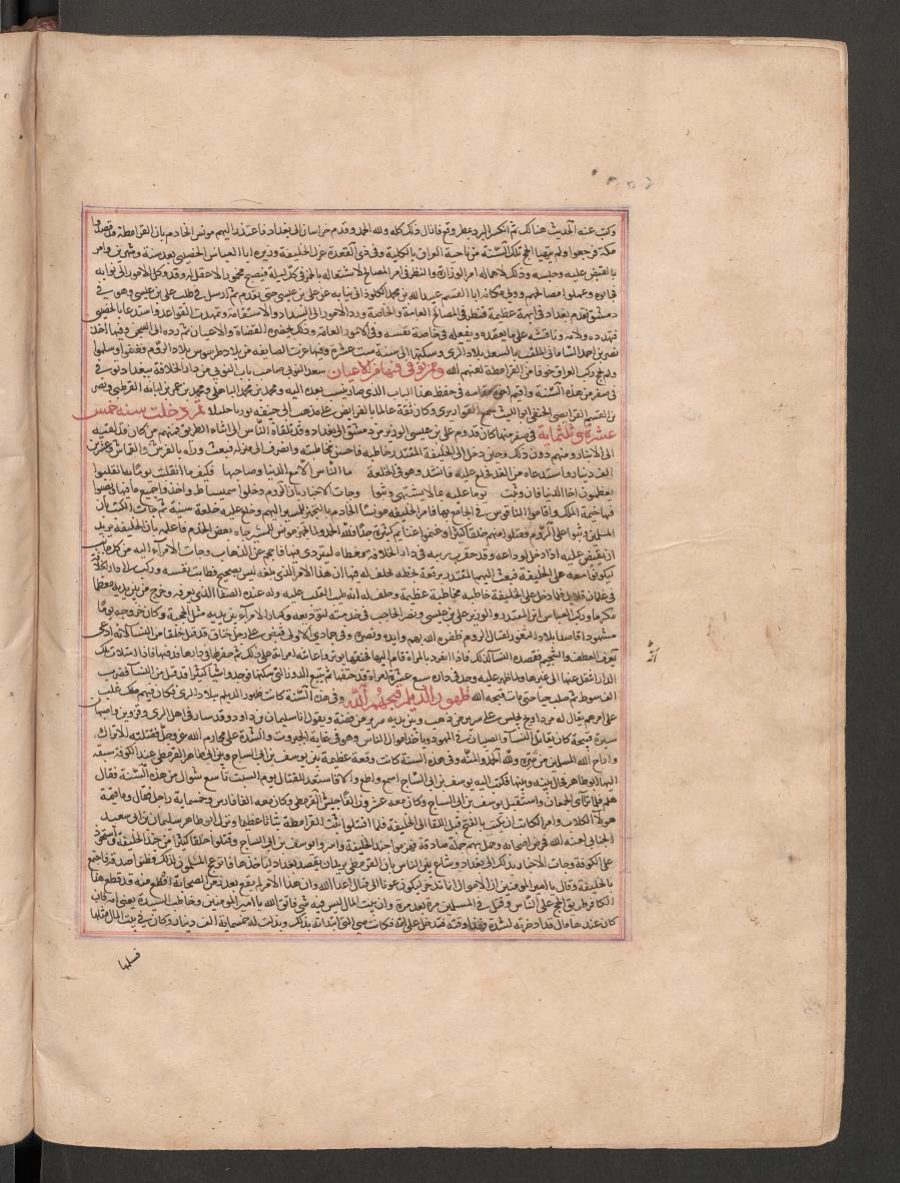 وكتب عنه الحديث هنالك ثم انكسر البرد عطر وقع فازال ذلك كله ولله الحمد وقدم خراسان الى بغداد فاعتذر اليهم مونس الخادم بان القرامطة قد قصدوا
مكة فرجعوا ولم يتهيا الحج تلك السنة من ناحية العراق بالكلية وفي ذي القعدة عزل الخليفة وزيره ابا العباس الخصيبي بعد سنة وشهرين وامر
بالقبض عليه وحبسه وذلك لاهماله امر الوزارة والنظر في امر المصالح لاشتغاله بالخمر في كل ليلة فيصبح مخمورا لا عقل له وقد وكل الامور الى نوابه
فخانوه وعملوا مصالحهم وولي مكانه ابا القسم عبيد الله بن محمد الكلوذاني نيابة عن علي بن عيسى حتى يقدم ثم ارسل في طلب علي بن عيسى وهو في
دمشق فقدم بغداد في ابهة عظيمة فنظر في المصالح العامة والخاصة ورد الامور الى السداد والاستقامة وتمهدت القواعد واستدعا بالخصيبي
فتهدده ولامه وناقشه على ما يعتمده ويفعله في خاصة نفسه وفي الامور العامة وذلك بحضرة القضاة والاعيان ثم رده الى السجن وفيها اخذ
نصر بن احمد الساماني الملقب بالسعيد بلاد الري وسكنها الى سنة ست عشرة وفيها غزت الصايفة من بلاد طرسوس بلاد الروم فغنموا وسلموا
ولم يحج ركب العراق خوفا من القرامطة لعنهم الله وممن توفي فيها من الاعيان سعد النوبي صاحب باب النوبي من دار الخلافة ببغداد توفي
في صفر من هذه السنة واقيم اخوه مقامه في حفظ هذا الباب الذي صار ينسب بعده اليه ومحمد بن محمد الباهلي ومحمد بن عمر بن لبابة القرطبي ونصر
بن القسم الفرايضي الحنفي ابو الليث سمع القواريري وكان ثقة عالما بالفرايض على مذهب ابي حنيفة ثم دخلت سنة خمس
عشرة وثلثماية في صفر منها كان قدوم علي بن عيسى الوزير من دمشق الى بغداد وقد تلقاه الناس الى اثناء الطريق فمنهم من كان قد لقيه
الى الانبار ومنهم دون ذلك وحين دخل الى الخليفة المقتدر خاطبه فاحسن مخاطبته وانصرف الى منزله فبعث وراه بالفرش والقماش وعشرين
الف دينار واستدعاه من الغد فخلع عليه فانشد وهو في الخلعة ما الناس الا مع الدنيا وصاحبها فكيف ما انقلبت يوما به انقلبوا
يعظمون اخا الدنيا فان وثبت يوما عليه بما لا يشتهي وثبوا وجات الاخبار بان الروم دخلوا سميساط واخذوا جميع ما فيها ونصبوا
فيها خيمة الملك واقاموا الناقوس في الجامع بها فامر الخليفة مونسا الخادم بالتجهيز للمسير اليهم وخلع عليه خلعة سنية ثم جات الكتب بان
المسلمين وثبوا على الروم فقتلوا منهم خلقا كثيرا وغنموا غنايم كثيرة جدا فلله الحمد ولما تجهز مونس للمسير جاه بعض الخدم فاعلمه بان الخليفة يريد
ان يقبض عليه اذا دخل لوداعه وقد حفرت زبية في دار الخلافة مغطاه ليتردى فيها فاحجم عن الذهاب وجات الامرا اليه من كل جانب
ليكونوا معه على الخليفة فبعث اليه المقتدر برقعة بخطه يحلف له فيها ان هذا الامر الذي بلغه ليس بصحيح فطابت نفسه وركب الى دار الخلافة
في غلمان قلايل فلما دخل على الخليفة خاطبه مخاطبة عظيمة وحلف له انه طيب القلب عليه وله عنده الصفا الذي يعرفه وخرج من بين يديه معظما
مكرما وركب العباس ابن المقتدر والوزير علي بن عيسى ونصر الحاجب في خدمته لتوديعه وكبار الامراء بين يديه مثل الحجبة وكان خروجه يوما
مشهودا قاصدا بلاد الثغور لقتال الروم ظفره الله بهم وايده ونصره وفي جمادى الاولى قبض على رجل خناق قد قتل خلقا من النسا لانه ادعى
يعرف العطف والتنجيم فقصده النسا لذلك فاذا انفرد بالمراة قام اليها فخنقها بوتر واعانته امراته على ذلك ثم حفر لها في داره فدفنها فاذا امتلات تلك
الدار انتقل عنها الى غيرها ولما ظهر عليه وجد في داره سبع عشرة امراة قد خنقهن ثم تتبع الدور التي سكنها فوجدوا شيا كثيرا قد قتل من النسا فضرب
الف سوط ثم صلب حيا حتى مات قبحه الله ظهور الديلم قبحهم الله وفي هذه السنة كانت ظهور الديلم ببلاد الري فكان فيهم ملك غلب
على امرهم يقال له مرداويج يجلس على سرير من ذهب وبين يديه سرير من فضة ويقول انا سليمان بن داود وقد سار في اهل الري وقزوين واصبهان
سيرة قبيحة كان يقتل النسا والصبيان في المهود وياخذ اموال الناس وهو في غاية الجبروت والشدة على محارم الله عز وجل فقتلته الاتراك
واراح الله المسلمين من شره ولله الحمد والمنة وفي هذه السنة كانت وقعة عظيمة بين يوسف بن ابي الساج وبين ابي طاهر القرمطي عند الكوفة سبقه
اليها ابو طاهر فحال بينه وبينها فكتب اليه يوسف بن ابي الساج اسمع واطع والا فاستعد للقتال يوم السبت تاسع شوال من هذه السنة فقال
هلم فلما تراءى الجمعان واستقبل يوسف بن ابي الساج وكان معه عشرون الفا جيش القرمطي وكان معه الفا فارس وخمسماية راجل فقال وما قيمة
هولاء الكلاب وامر الكاتب ان يكتب بالفتح قبل اللقا الى الخليفة فلما اقتتلوا ثبت القرامطة ثباتا عظيما ونزل ابو طاهر سليمان بن ابي سعيد
الجنابي لعنه الله فحرض اصحابه وحمل بهم حملة صادقة فهزموا جند الخليفة واسروا يوسف بن ابي الساج وقتلوا خلقا كثيرا من جند الخليفة واستحوذ
على الكوفة وجات الاخبار بذلك الى بغداد وشاع بين الناس بان القرمطي يريد ان يقصد بغداد لياخذها فانزعج المسلمون لذلك وظنوا صدقه فاجتمع
بالخليفة وقال يا امير المومنين ان الاموال انما تدخر ليكون عونا الى قتال اعدا الله وان هذا الامر لم يقع بعد زمن الصحابة افظع منه قد قطع هذا
الكافر طريق الحج على الناس وفتك في المسلمين مرة بعد مرة وان بيت المال ليس فيه شي فاتق الله يا امير المومنين وخاطب السيدة يعني امه فان
كان عندها مال قد ادخرته لشدة فهذا وقته فدخل على امه فكانت هي التي ابتداته بذلك وبذلت له خمسماية الف دينار وكان في بيت المال مثلها
فسلمها